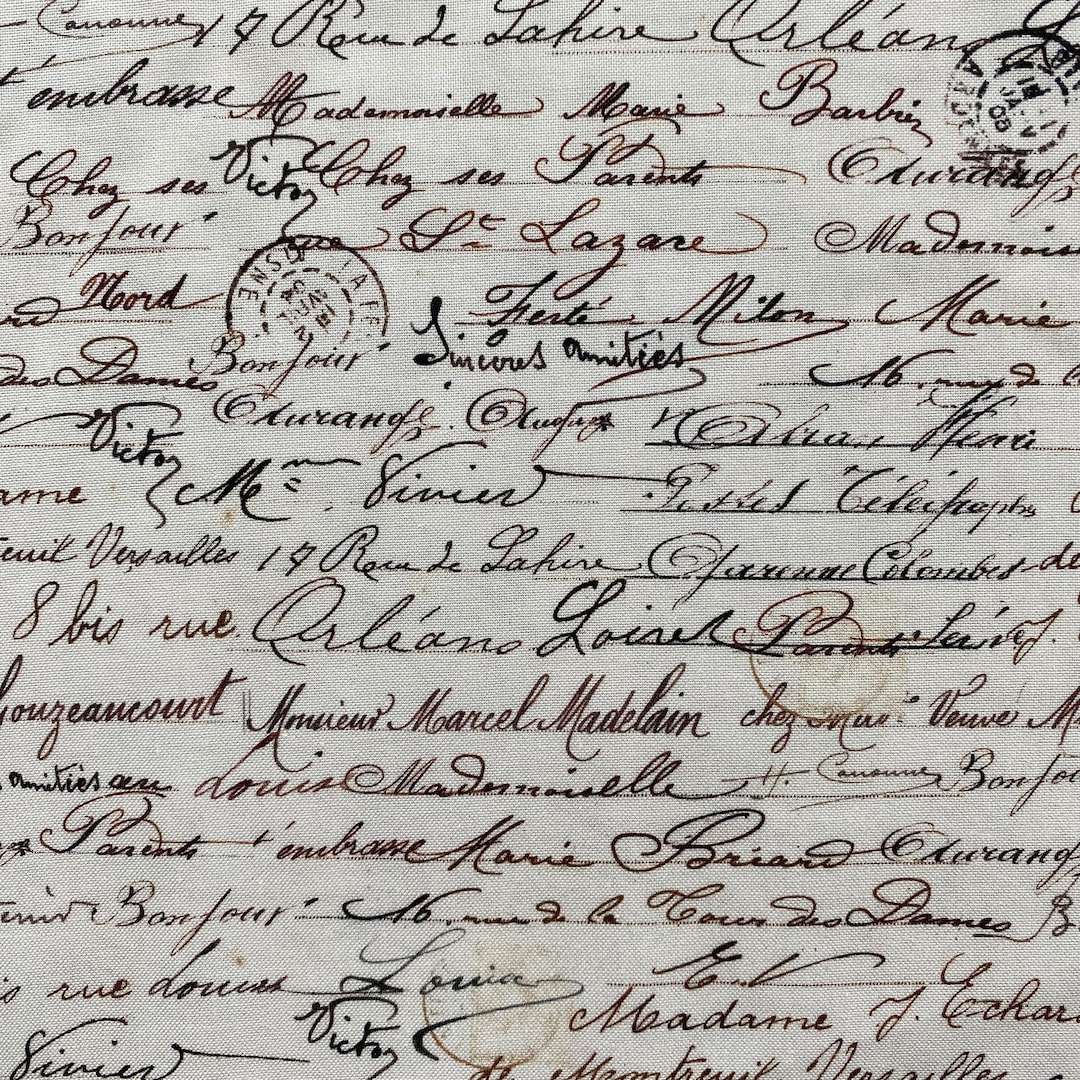 Canonne 17 Rue de Lahire Orléans
t'embrasse Mademoiselle Marie Barbier
Chez ses Victor Chez ses Parents
Bonjour rue St Lazare Mademois
Nord Ferté Milon Marie
des Dames Bonjour Sincères amitiés 16, rue de l
Victor Henri
ame Mme Vivier Postes Télégraphes
reuil Versailles 17 Rue de Lahire Garenne Colombes de
8 bis rue Orléans Loiret Parents
Gouzeaucourt Monsieur Marcel Madelain chez Mme Veuve M
amitiés au Louis Mademoiselle H. Canonne Bonjou
Parents t'embrasse Marie Briard
Bonjour 16, rue de la Tour des Dames B
is rue Louis Louise E.V
Victor Madame J. Echar
Vivier de Montreuil Versailles